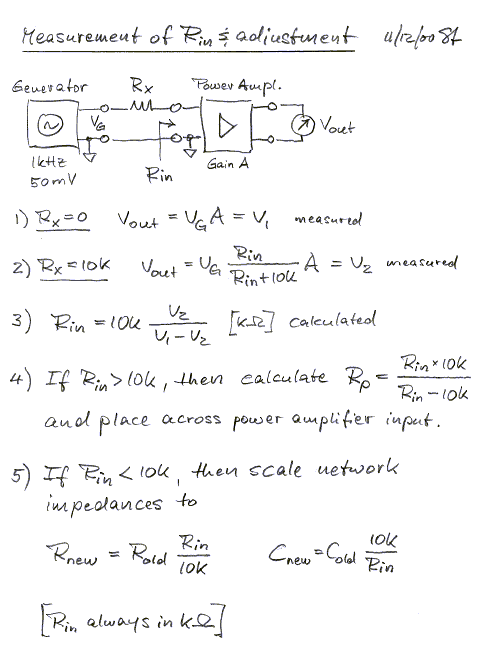 Measurement of Rin & adjustment 11/12/00 SL
Generator Rx Power Ampl.
VG Vout
1kHz
50mV Rin Gain A
1) Rx=0 Vout = VG A = V1 measured
2) Rx=10K Vout = VG Rin / (Rin+10K) A = V2 measured
3) Rin = 10K V2 / (V1-V2) [kΩ] calculated
4) If Rin>10K, then calculate Rp = Rin×10K / (Rin-10K)
and place across power amplifier input.
5) If Rin<10K, then scale network
impedances to
Rnew = Rold Rin / 10K Cnew = Cold 10K / Rin
[Rin always in kΩ]